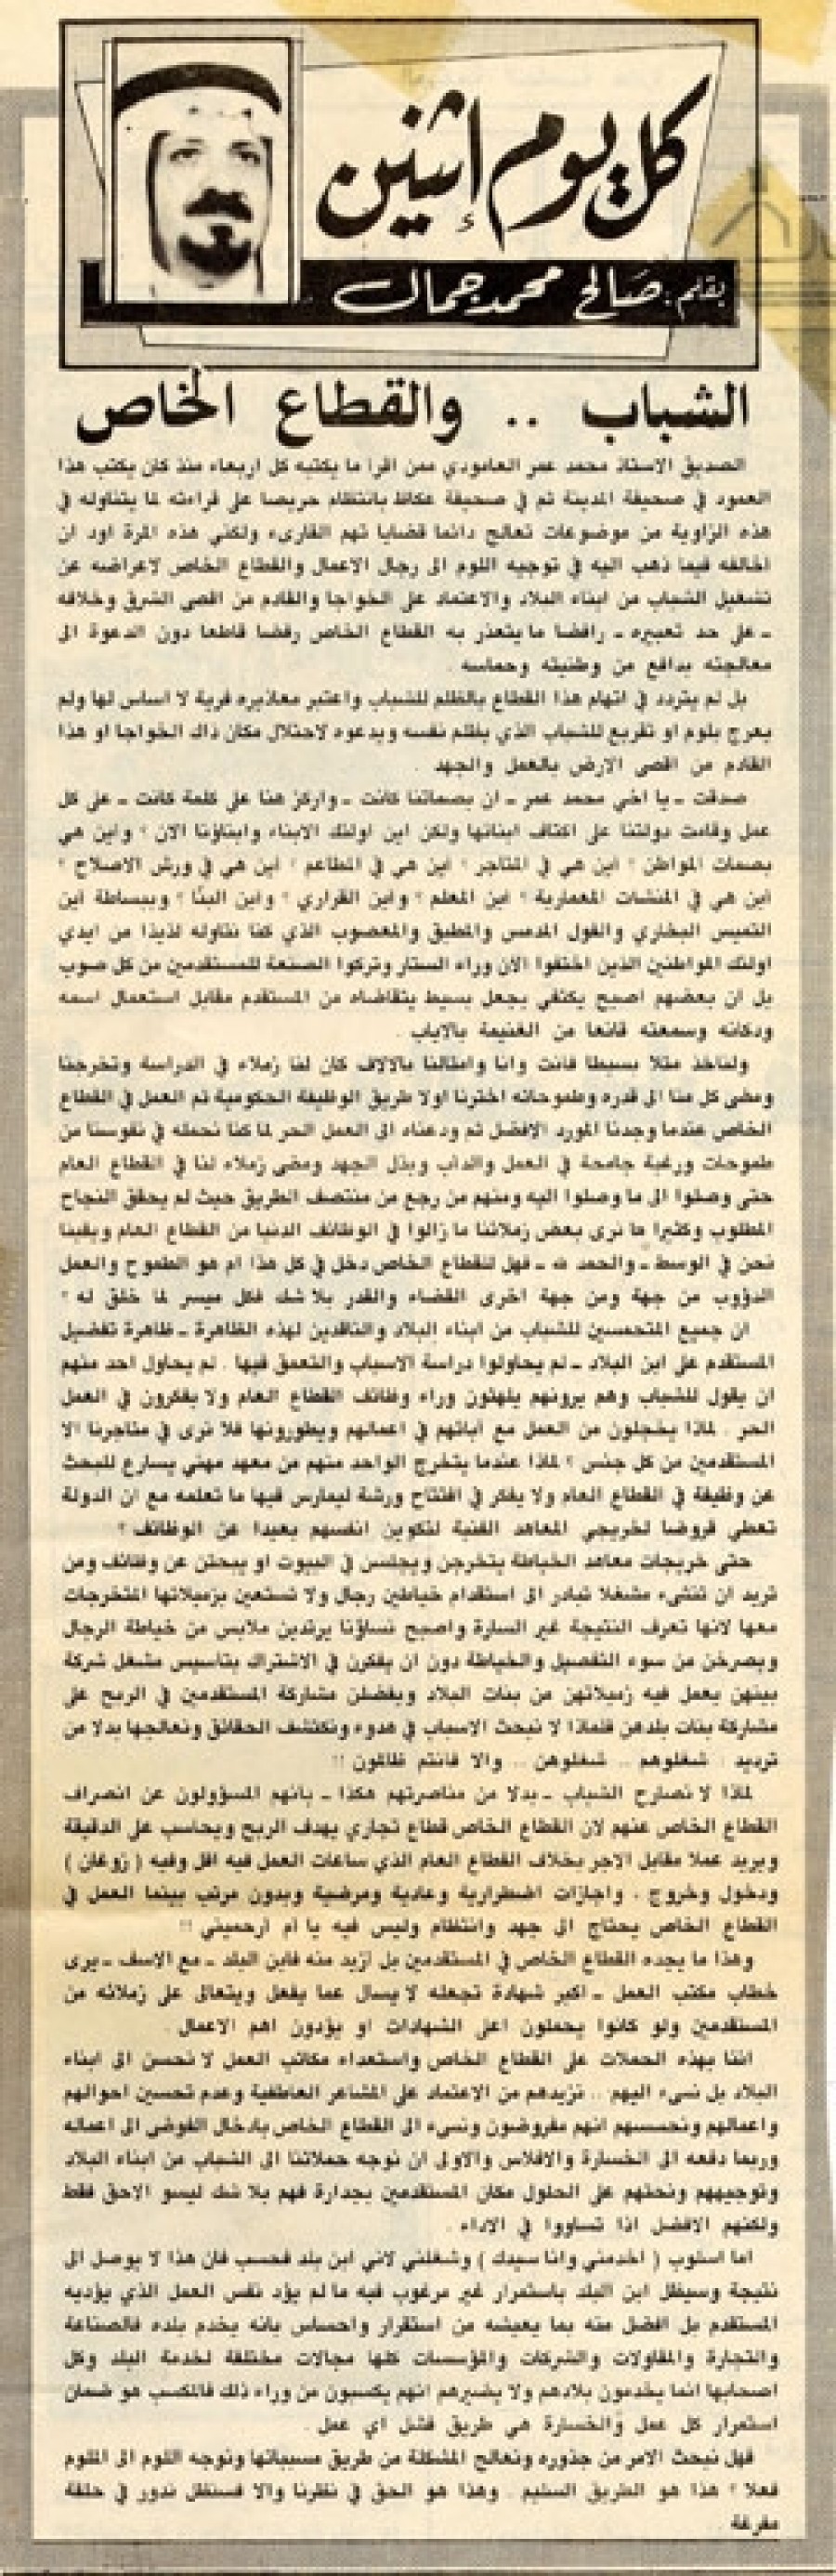 كل يوم إثنين
بقلم : صالح محمد جمال
الشباب .. والقطاع الخاص
الصديق الاستاذ محمد عمر العامودي ممن اقرا ما يكتبه كل اربعاء منذ كان يكتب هذا
العمود في صحيفة المدينة ثم في صحيفة عكاظ بانتظام حريصا على قراءته لما يتناوله في
هذه الزاوية من موضوعات تعالج دائما قضايا تهم القارىء ولكني هذه المرة اود ان
اخالفه فيما ذهب اليه في توجيه اللوم الى رجال الاعمال والقطاع الخاص لاعراضه عن
تشغيل الشباب من ابناء البلاد والاعتماد على الخواجا والقادم من اقصى الشرق وخلافه
ـ على حد تعبيره ـ رافضا ما يتعذر به القطاع الخاص رفضا قاطعا دون الدعوة الى
معالجته بدافع من وطنيته وحماسه .
بل لم يتردد في اتهام هذا القطاع بالظلم للشباب واعتبر معاذيره فرية لا اساس لها ولم
يعرج بلوم او تقريع للشباب الذي يظلم نفسه ويدعوه لاحتلال مكان ذاك الخواجا او هذا
القادم من اقصى الارض بالعمل والجهد .
صدقت ـ يا اخي محمد عمر ـ ان بصماتنا كانت ـ واركز هنا على كلمة كانت ـ على كل
عمل وقامت دولتنا على اكتاف ابنائها ولكن اين اولئك الابناء وابناؤنا الان ؟ واين هي
بصمات المواطن ؟ اين هي في المتاجر ؟ اين هي في المطاعم ؟ اين هي في ورش الاصلاح ؟
اين هي في المنشات المعمارية ؟ اين المعلم ؟ واين القراري ؟ واين البنا ؟ وببساطة اين
التميس البخاري والفول المدمس والمطبق والمعصوب الذي كنا نتاوله لذيذا من ايدي
اولئك المواطنين الذين اختفوا الان وراء الستار وتركوا الصنعة للمستقدمين من كل صوب
بل ان بعضهم اصبح يكتفي بجعل بسيط يتقاضاه من المستقدم مقابل استعمال اسمه
ودكانه وسمعته قانعا من الغنيمة بالاياب .
ولناخذ مثلا بسيطا فانت وانا وامثالنا بالالاف كان لنا زملاء في الدراسة وتخرجنا
ومضى كل منا الى قدره وطموحاته اخترنا اولا طريق الوظيفة الحكومية ثم العمل في القطاع
الخاص عندما وجدنا المورد الافضل ثم ودعناه الى العمل الحر لما كنا نحمله في نفوسنا من
طموحات ورغبة جامحة في العمل والداب وبذل الجهد ومضى زملاء لنا في القطاع العام
حتى وصلوا الى ما وصلوا اليه ومنهم من رجع من منتصف الطريق حيث لم يحقق النجاح
المطلوب وكثيرا ما نرى بعض زملائنا ما زالوا في الوظائف الدنيا من القطاع العام وبقينا
نحن في الوسط ـ والحمد لله ـ فهل للقطاع الخاص دخل في كل هذا ام هو الطموح والعمل
الدؤوب من جهة ومن جهة اخرى القضاء والقدر بلا شك فكل ميسر لما خلق له ؟
ان جميع المتحمسين للشباب من ابناء البلاد والناقدين لهذه الظاهرة ـ ظاهرة تفضيل
المستقدم على ابن البلاد ـ لم يحاولوا دراسة الاسباب والتعمق فيها . لم يحاول احد منهم
ان يقول للشباب وهم يرونهم يلهثون وراء وظائف القطاع العام ولا يفكرون في العمل
الحر . لماذا يخجلون من العمل مع ابائهم في اعمالهم ويطورونها فلا نرى في متاجرنا الا
المستقدمين من كل جنس ؟ لماذا عندما يتخرج الواحد منهم من معهد مهني يسارع للبحث
عن وظيفة في القطاع العام ولا يفكر في افتتاح ورشة ليمارس فيها ما تعلمه مع ان الدولة
تعطي قروضا لخريجي المعاهد الفنية لتكوين انفسهم بعيدا عن الوظائف ؟
حتى خريجات معاهد الخياطة يتخرجن ويجلسن في البيوت او يبحثن عن وظائف ومن
تريد ان تنشىء مشغلا تبادر الى استقدام خياطين رجال ولا تستعين بزميلاتها المتخرجات
معها لانها تعرف النتيجة غير السارة واصبح نساؤنا يرتدين ملابس من خياطة الرجال
ويصرخن من سوء التفصيل والخياطة دون ان يفكرن في الاشتراك بتاسيس مشغل شركة
بينهن يعمل فيه زميلاتهن من بنات البلاد ويفضلن مشاركة المستقدمين في الربح على
مشاركة بنات بلدهن فلماذا لا نبحث الاسباب في هدوء ونكتشف الحقائق ونعالجها بدلا من
ترديد : شغلوهم .. شغلوهن .. والا فانتم ظالمون !!
لماذا لا نصارح الشباب ـ بدلا من مناصرتهم هكذا ـ بانهم المسؤولون عن انصراف
القطاع الخاص عنهم لان القطاع الخاص قطاع تجاري يهدف الربح ويحاسب على الدقيقة
ويريد عملا مقابل الاجر بخلاف القطاع العام الذي ساعات العمل فيه اقل وفيه ( زوغان )
ودخول وخروج . واجازات اضطرارية وعادية ومرضية وبدون مرتب بينما العمل في
القطاع الخاص يحتاج الى جهد وانتظام وليس فيه يا ام ارحميني !!
وهذا ما يجده القطاع الخاص في المستقدمين بل ازيد منه فابن البلد ـ مع الاسف ـ يرى
خطاب مكتب العمل ـ اكبر شهادة تجعله لا يسال عما يفعل ويتعالى على زملائه من
المستقدمين ولو كانوا يحملون اعلى الشهادات او يؤدون اهم الاعمال .
اننا بهذه الحملات على القطاع الخاص واستعداء مكاتب العمل لا نحسن الى ابناء
البلاد بل نسيء اليهم .. نزيدهم من الاعتماد على المشاعر العاطفية وعدم تحسين احوالهم
واعمالهم ونحسسهم انهم مفروضون ونسيء الى القطاع الخاص بادخال الفوضى الى اعماله
وربما دفعه الى الخسارة والافلاس والاولى ان نوجه حملاتنا الى الشباب من ابناء البلاد
وتوجيههم ونحثهم على الحلول مكان المستقدمين بجدارة فهم بلا شك ليسو الاحق فقط
ولكنهم الافضل اذا تساووا في الاداء .
اما اسلوب ( اخدمني وانا سيدك ) وشغلني لاني ابن بلد فحسب فان هذا لا يوصل الى
نتيجة وسيظل ابن البلد باستمرار غير مرغوب فيه ما لم يؤد نفس العمل الذي يؤديه
المستقدم بل افضل منه بما يعيشه من استقرار واحساس بانه يخدم بلده فالصناعة
والتجارة والمقاولات والشركات والمؤسسات كلها مجالات مختلفة لخدمة البلد وكل
اصحابها انما يخدمون بلادهم ولا يضيرهم انهم يكسبون من وراء ذلك فالمكسب هو ضمان
استمرار كل عمل والخسارة هي طريق فشل اي عمل .
فهل نبحث الامر من جذوره ونعالج المشكلة من طريق مسبباتها ونوجه اللوم الى الملوم
فعلا ؟ هذا هو الطريق السليم . وهذا هو الحق في نظرنا والا فسنظل ندور في حلقة
مفرغة .